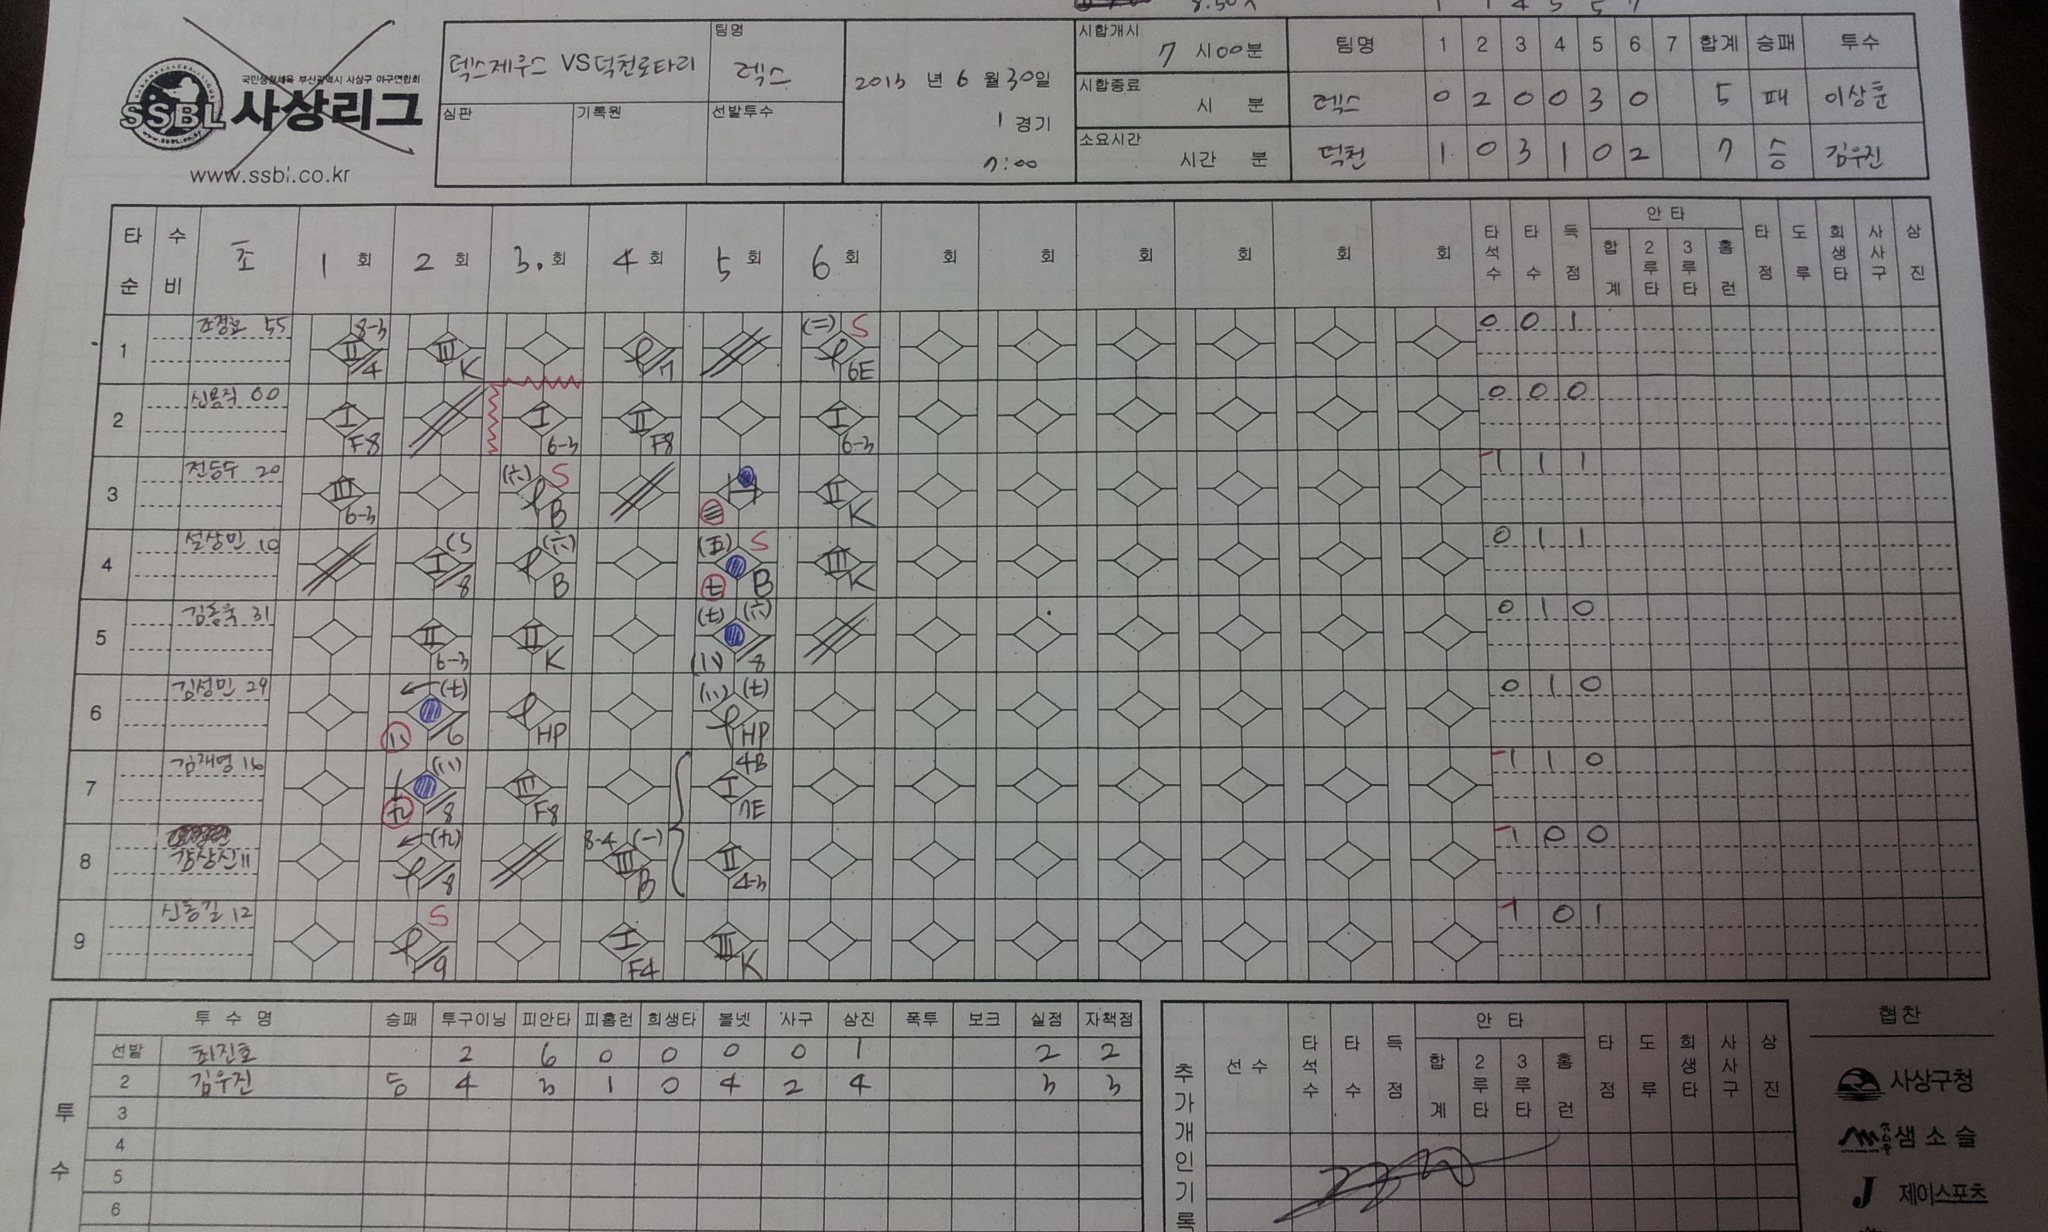 국민생활체육 부산광역시 사상구 야구연합회
SSBL 사상리그
www.ssbl.co.kr
렉스제우스 VS 덕천로타리
팀명
렉스
심판
기록원
선발투수
2013 년 6 월 30일
1 경기
7:00
시합개시
7 시00분
시합종료
시 분
소요시간
시간 분
팀명 1 2 3 4 5 6 7 합계 승패 투수
렉스 0 2 0 0 3 0 5 패 이상훈
덕천 1 0 3 1 0 2 7 승 김우진
타순 수비 초 1 회 2 회 3. 회 4 회 5 회 6 회 회 회 회 회 회 회 타석수 타수 득점 안타 합계 2루타 3루타 홈런 타점 도루 희생타 사사구 삼진
1 55 8-3 II 4 III K 7 (二) S 6E 0 0 1
2 신용직 00 I F8 I 6-3 II F8 I 6-3 0 0 0
3 전등수 20 III 6-3 (六) S B II K 1 1 1
4 설상민 10 I 8 (六) B (五) S 七 B III K 0 1 1
5 김동욱 31 II 6-3 II K (七) (六) 8 0 1 0
6 김성민 29 (七) 6 HP (七) HP 0 1 0
7 김재영 16 8 III F8 I 4B 7E 1 1 0
8 강상신 11 8 8-4 (一) III B II 4-3 1 0 0
9 신동길 12 S 9 I F4 III K 1 0 1
투수
투수명 승패 투구이닝 피안타 피홈런 희생타 볼넷 사구 삼진 폭투 보크 실점 자책점
선발 최진호 2 6 0 0 0 0 1 2 2
2 김우진 승 4 3 1 0 4 2 4 3 3
3
4
5
6
추가개인기록
선수 타석수 타수 득점 안타 합계 2루타 3루타 홈런 타점 도루 희생타 사사구 삼진
협찬
사상구청
샘소슬
J 제이스포츠